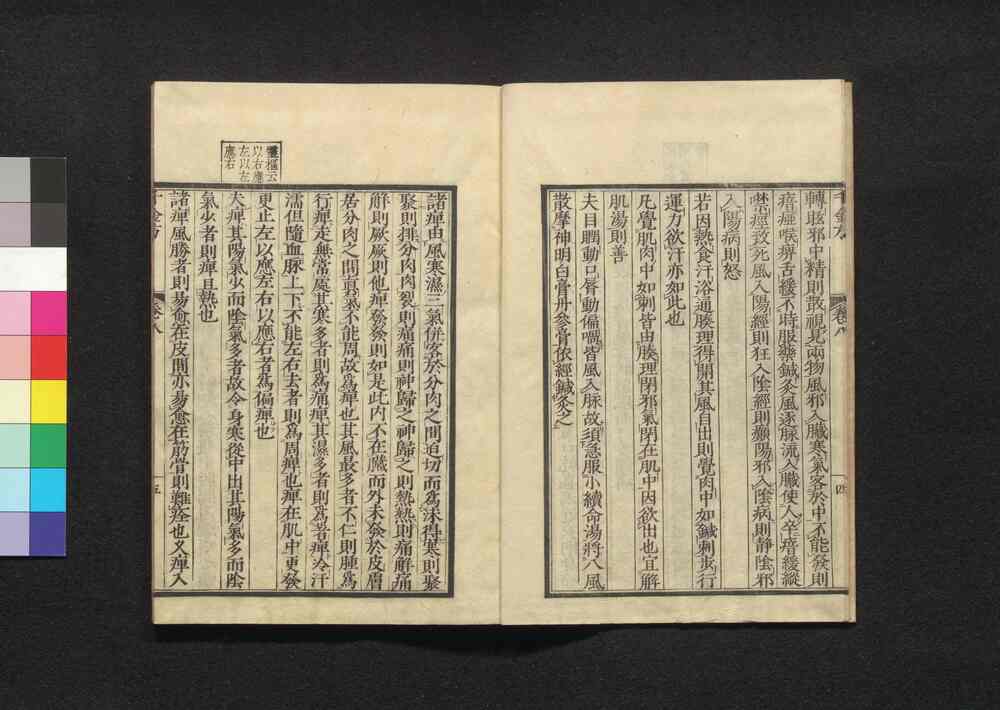 千金方 卷八 四
轉眩邪中精則散視見兩物風邪入臟寒氣客於中不能發則
瘖瘂喉痹舌緩不時服藥鍼灸風逐脉流入臟使人卒瘖緩縱
噤痙致死風入陽經則狂入陰經則癲陽邪入陰病則靜陰邪
入陽病則怒
若因熱食汗浴通腠理得開其風自出則覺肉中如鍼刺步行
運力欲汗亦如此也
凡覺肌肉中如刺皆由腠理閉邪氣閉在肌中因欲出也宜解
肌湯則善
夫目瞤動口脣動偏喎皆風入脉故須急服小續命湯將八風
散摩神明白膏丹參膏依經鍼灸之
靈樞云
以右應
左以左
應右
諸痹由風寒濕三氣併客於分肉之間迫切而爲沫得寒則聚
聚則排分肉肉裂則痛痛則神歸之神歸之則熱熱則痛解痛
解則厥厥則他痹發發則如是此內不在臟而外未發於皮膚
居分肉之間真氣不能周故爲痹也其風最多者不仁則腫爲
行痹走無常處其寒多者則爲痛痹其濕多者則爲著痹冷汗
濡但隨血脉上下不能左右去者則爲周痹也痹在肌中更發
更止左以應左右以應右者爲偏痹也
夫痹其陽氣少而陰氣多者故令身寒從中出其陽氣多而陰
氣少者則痹且熱也
諸痹風勝者則易愈在皮間亦易愈在筋骨則難痊也久痹入
千金方 卷八 五